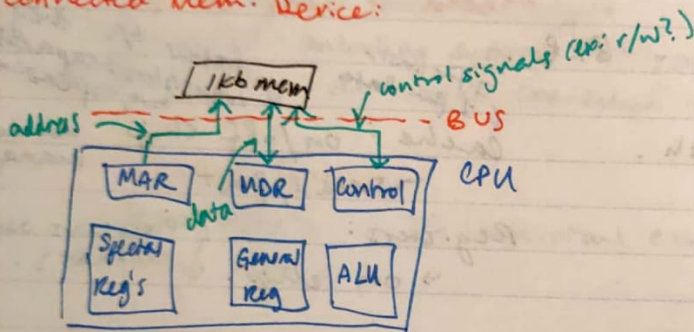 Connected Mem. Device:
1kb mem
control signals (exp: r/w?)
address
BUS
MAR
MDR
Control
CPU
data
Special
Reg's
General
Reg
ALU